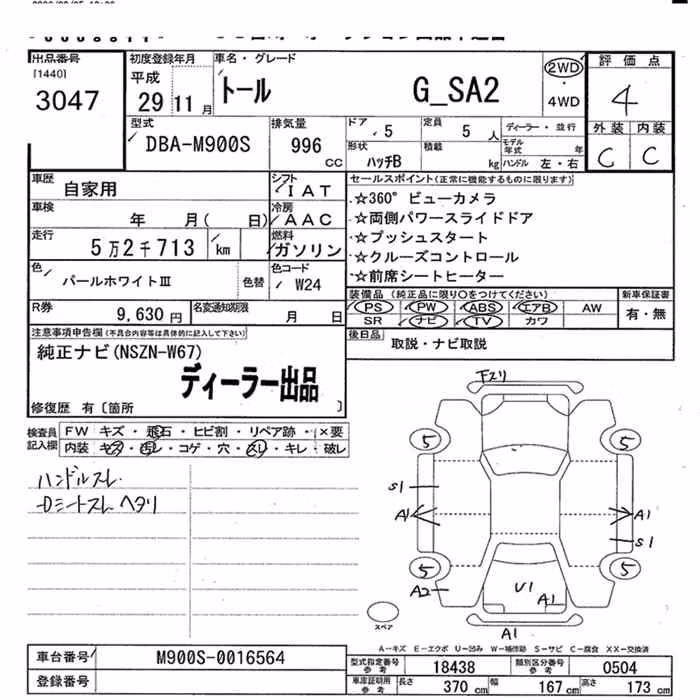 出品番号
[1440]
3047
初度登録年月
平成
29 11 月
車名・グレード
トール G_SA2
2WD
・
4WD
評価点
4
外装 内装
C C
型式
DBA-M900S
排気量
996
CC
ドア
5
定員
5 人
ディーラー・並行
形状
ハッチB
積載
kg
モデル年式 年
ハンドル 左・右
車歴 自家用
シフト
IAT
車検 年 月( 日)
冷房
AAC
走行 5万2千713 km
燃料
ガソリン
色 パールホワイトⅢ 色替
色コード
W24
R券 9,630 円
名変通知期限 月 日
セールスポイント(正常に機能するものに限ります)
☆360° ビューカメラ
☆両側パワースライドドア
☆プッシュスタート
☆クルーズコントロール
☆前席シートヒーター
装備品(純正品に限り○をつけてください)
PS PW ABS エアB AW
SR ナビ TV カワ
新車保証書
有・無
後日品 取説・ナビ取説
注意事項申告欄(不具合内容等は具体的に記入して下さい)
純正ナビ(NSZN-W67)
ディーラー出品
修復歴 有〔箇所 〕
検査員記入欄
FW キズ・飛石・ヒビ割・リペア跡・×要
内装 キズ・汚レ・コゲ・穴・スレ・キレ・破レ
ハンドルスレ
Dシートスレ ヘタリ
下スリ
5 5
S1
A1 A1
S1
5 5
A2
U1
A1
A1
スペア
A-キズ E-エクボ U-凹み W-補修跡 S-サビ C-腐食 XX-交換済
車台番号 M900S-0016564
登録番号
型式指定番号 参考 18438
類別区分番号 参考 0504
車庫証明用 参考 長さ 370 cm 幅 167 cm 高さ 173 cm